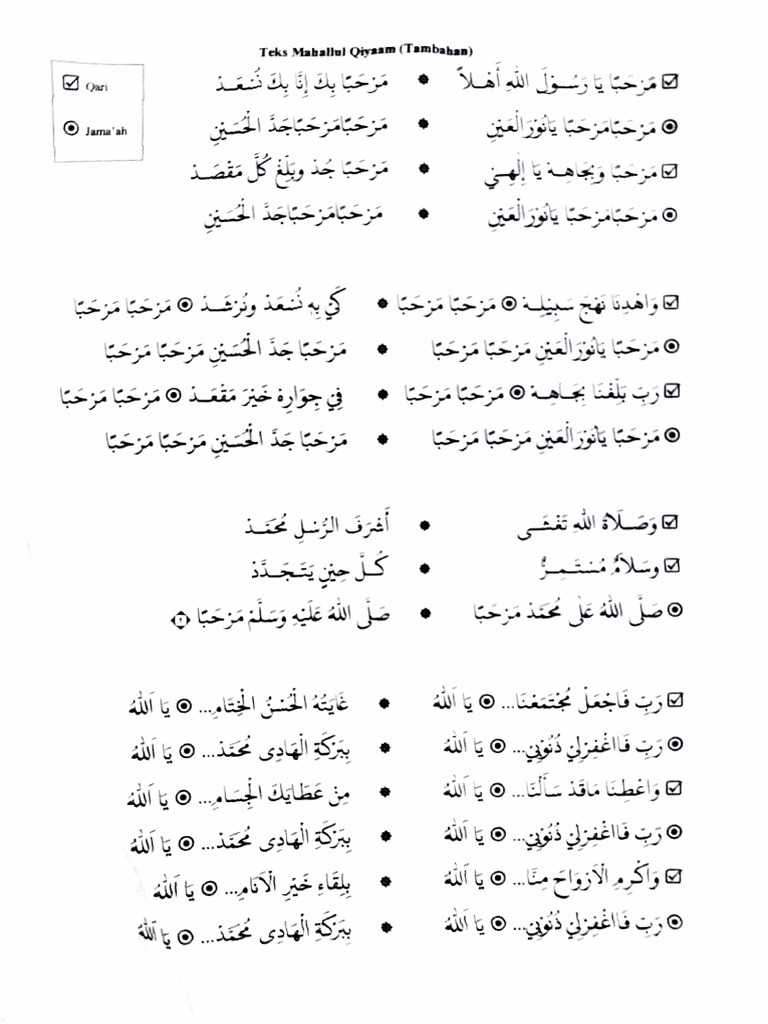 Teks Mahallul Qiyaam (Tambahan)
☑ Qari
◉ Jama'ah
☑ مَرْحَبًا يَا رَسُوْلَ اللهِ أَهْلاً ✸ مَرْحَبًا بِكَ إِنَّا بِكَ نُسْعَدْ
◉ مَرْحَبًامَرْحَبًا يَانُوْرَالْعَيْنِ ✸ مَرْحَبًامَرْحَبًاجَدَّ الْحُسَيْنِ
☑ مَرْحَبًا وَبِجَاهِهْ يَا إِلٰهِيْ ✸ مَرْحَبًا جُدْ وبَلِّغْ كُلَّ مَقْصَدْ
◉ مَرْحَبًامَرْحَبًا يَانُوْرَالْعَيْنِ ✸ مَرْحَبًامَرْحَبًاجَدَّ الْحُسَيْنِ
☑ وَاهْدِنَا نَهْجَ سَبِيْلِهْ ◉ مَرْحَبًا مَرْحَبًا ✸ كَيْ بِهِ نُسْعَدْ ونُرْشَدْ ◉ مَرْحَبًا مَرْحَبًا
◉ مَرْحَبًا يَانُوْرَالْعَيْنِ مَرْحَبًا مَرْحَبًا ✸ مَرْحَبًا جَدَّ الْحُسَيْنِ مَرْحَبًا مَرْحَبًا
☑ رَبِّ بَلِّغْنَا بِجَاهِهْ ◉ مَرْحَبًا مَرْحَبًا ✸ فِي جِوَارِهْ خَيْرَ مَقْعَدْ ◉ مَرْحَبًا مَرْحَبًا
◉ مَرْحَبًا يَانُوْرَالْعَيْنِ مَرْحَبًا مَرْحَبًا ✸ مَرْحَبًا جَدَّ الْحُسَيْنِ مَرْحَبًا مَرْحَبًا
☑ وَصَلَاةُ اللهِ تَغْشَى ✸ أَشْرَفَ الرُّسْلِ مُحَمَّدْ
☑ وسَلاَمٌ مُسْتَمِرٌّ ✸ كُلَّ حِيْنٍ يَتَجَدَّدْ
◉ صَلَّى اللهُ عَلَى مُحَمَّدْ مَرْحَبًا ✸ صَلَّى اللهُ عَلَيْهِ وَسَلَّمْ مَرْحَبًا ٢
☑ رَبِّ فَاجْعَلْ مُجْتَمَعْنَا... ◉ يَا اَللهُ ✸ غَايَتُهُ الْحُسْنُ الْخِتَامِ... ◉ يَا اَللهُ
◉ رَبِّ فَااغْفِرْلِيْ ذُنُوْبِيْ... ◉ يَا اَللهُ ✸ بِبَرْكَةِ الْهَادِى مُحَمَّدْ... ◉ يَا اَللهُ
☑ وَاعْطِنَا مَاقَدْ سَأَلْنَا... ◉ يَا اَللهُ ✸ مِنْ عَطَايَكَ الْجِسَامِ... ◉ يَا اَللهُ
◉ رَبِّ فَااغْفِرْلِيْ ذُنُوْبِيْ... ◉ يَا اَللهُ ✸ بِبَرْكَةِ الْهَادِى مُحَمَّدْ... ◉ يَا اَللهُ
☑ وَاكْرِمِ الْاَرْوَاحَ مِنَّا... ◉ يَا اَللهُ ✸ بِلِقَاءِ خَيْرِ الْاَنَامِ... ◉ يَا اَللهُ
◉ رَبِّ فَااغْفِرْلِيْ ذُنُوْبِيْ... ◉ يَا اَللهُ ✸ بِبَرْكَةِ الْهَادِى مُحَمَّدْ... ◉ يَا اَللهُ